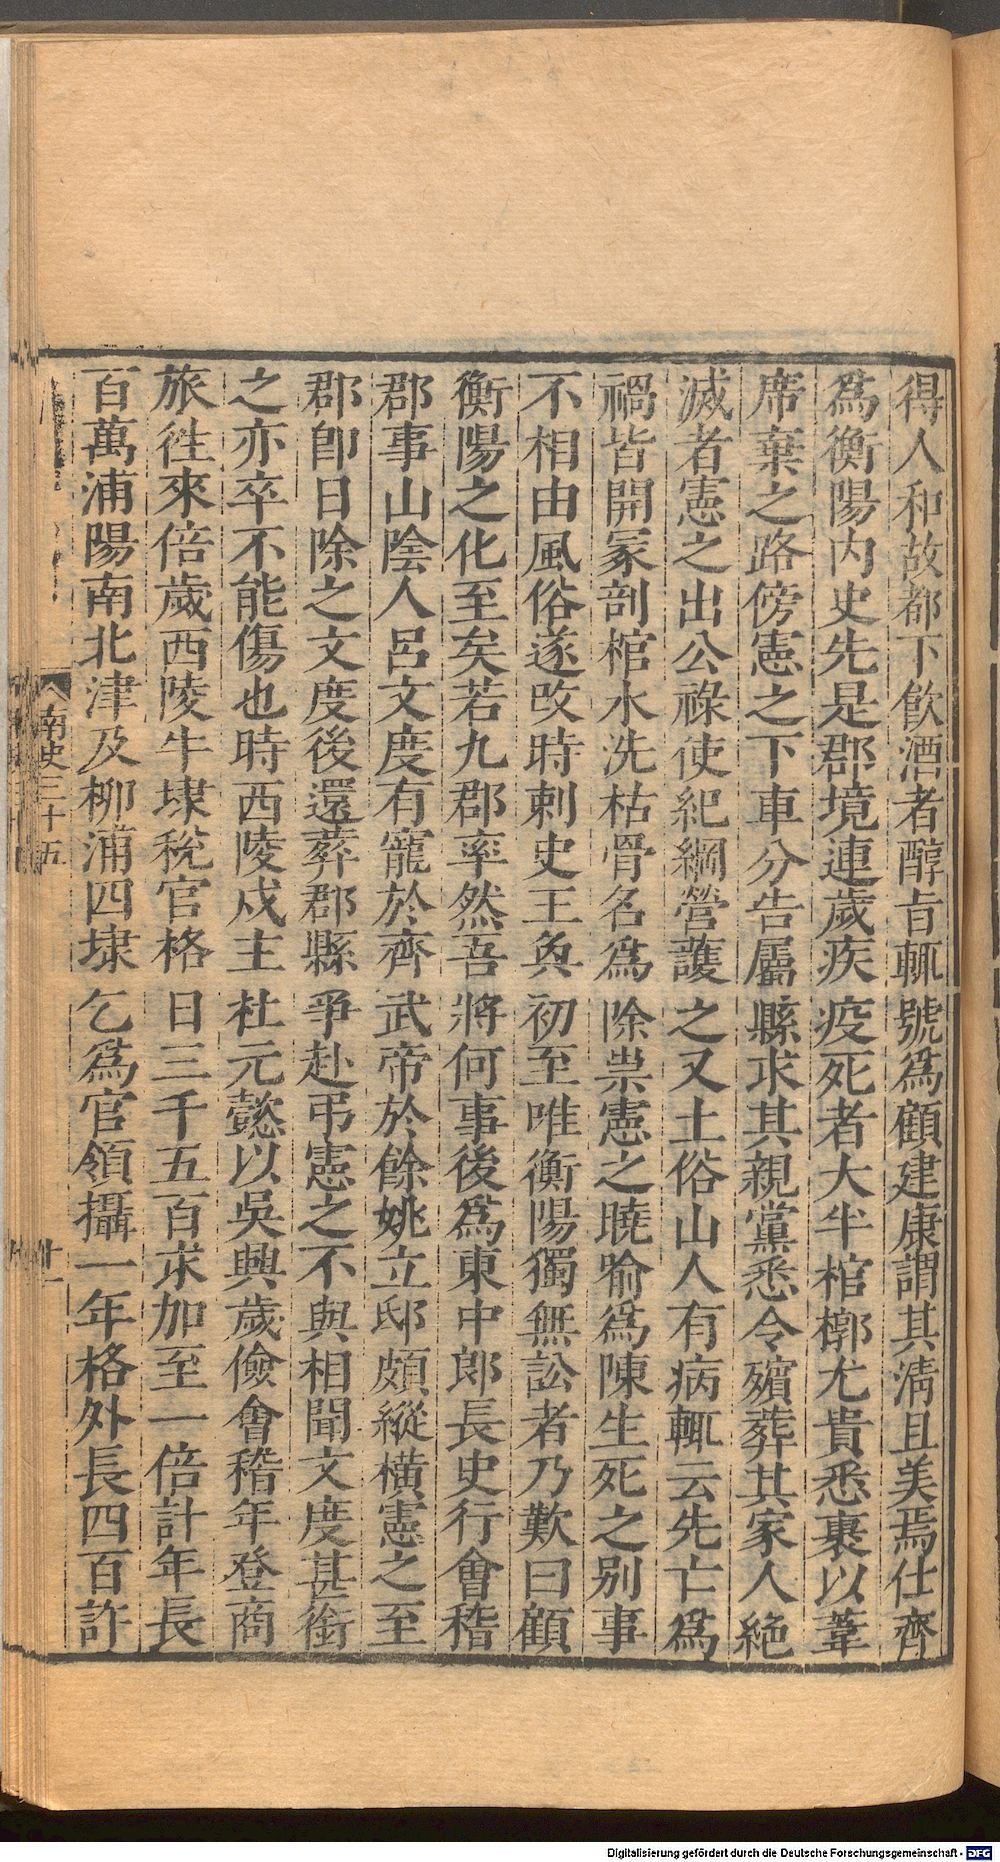 得人和故都下飲酒者醇旨輒號爲顧建康謂其清且美焉仕齊
爲衡陽内史先是郡境連歲疾疫死者大半棺槨尤貴悉裹以葦
席棄之路傍憲之下車分告屬縣求其親黨悉令殯葬其家人絶
滅者憲之出公祿使紀綱營護之又土俗山人有病輒云先亡爲
禍皆開冢剖棺水洗枯骨名爲除祟憲之曉喻爲陳生死之别事
不相由風俗遂改時刺史王奐初至唯衡陽獨無訟者乃歎曰顧
衡陽之化至矣若九郡率然吾將何事後爲東中郎長史行會稽
郡事山陰人呂文度有寵於齊武帝於餘姚立邸頗縱横憲之至
郡卽日除之文度後還葬郡縣爭赴弔憲之不與相聞文度甚銜
之亦卒不能傷也時西陵戍主杜元懿以吳興歲儉會稽年登商
旅往來倍歲西陵牛埭稅官格日三千五百求加至一倍計年長
百萬浦陽南北津及柳浦四埭乞爲官領攝一年格外長四百許
南史三十五
十一
Digitalisierung gefördert durch die Deutsche Forschungsgemeinschaft - DFG